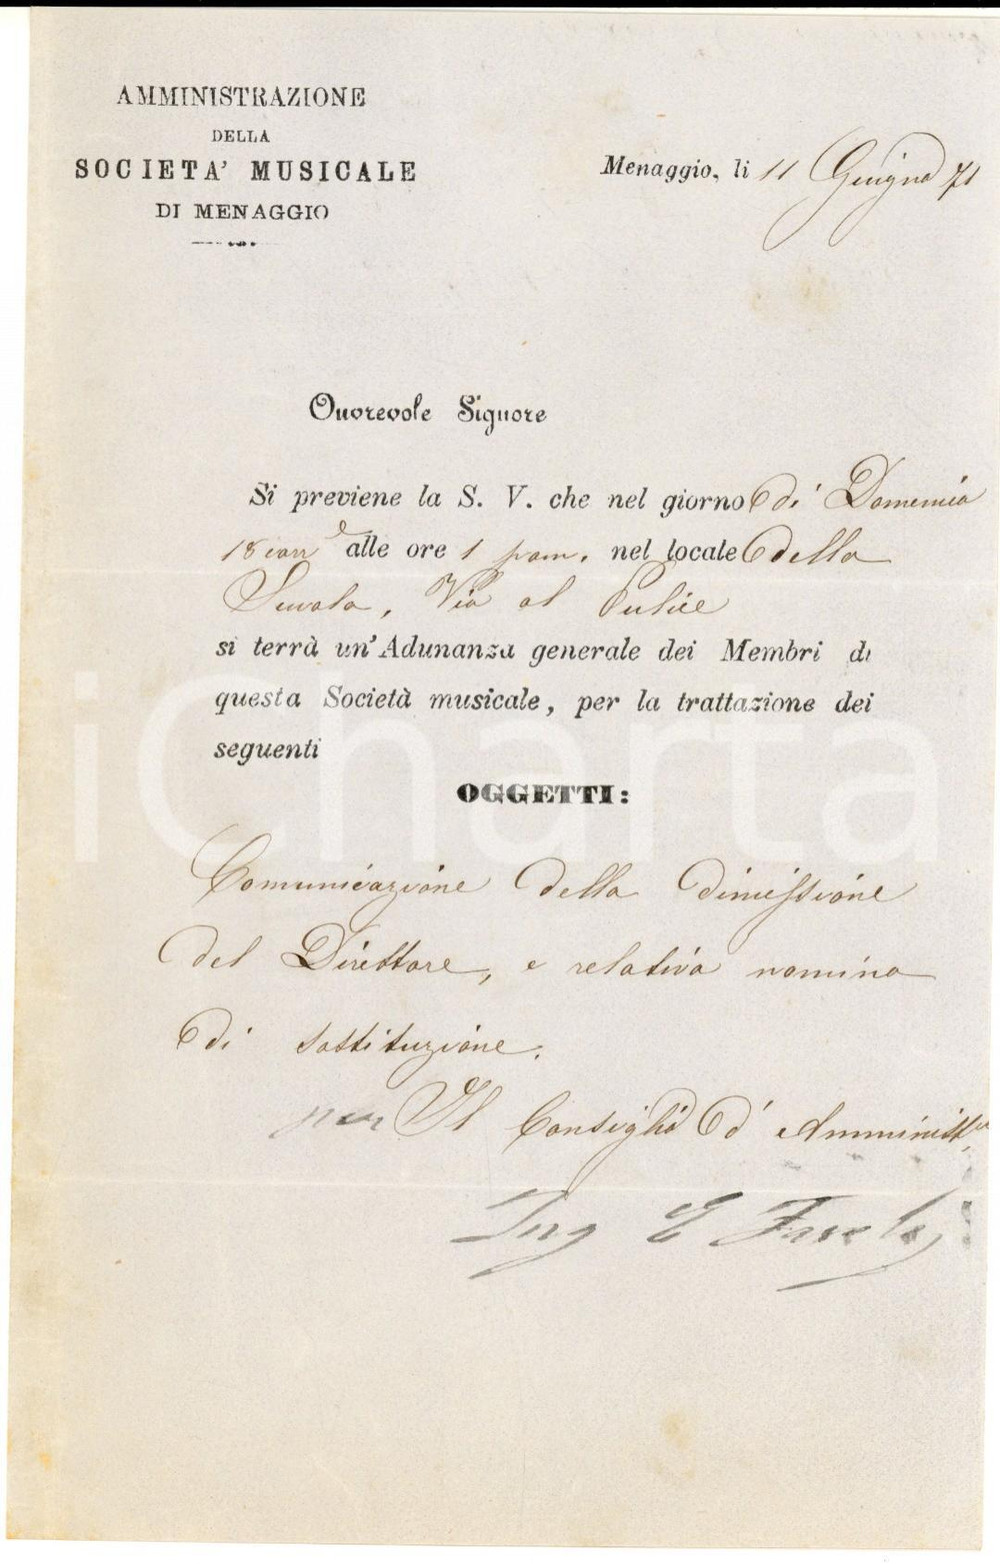 AMMINISTRAZIONE
DELLA
SOCIETA' MUSICALE
DI MENAGGIO
Menaggio, li 11 Giugno 71
Onorevole Signore
Si previene la S. V. che nel giorno di Domenica
18 corr.e alle ore 1 pom. nel locale della
Scuola, Via al Pulice
si terrà un' Adunanza generale dei Membri di
questa Società musicale, per la trattazione dei
seguenti
OGGETTI:
Comunicazione della dimissione
del Direttore, e relativa nomina
di sostituzione.
per Il Consiglio d' Amminist.
Ing E
iCharta